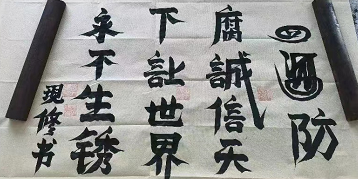 防
腐誠信天
下让世界
永不生锈
現修书